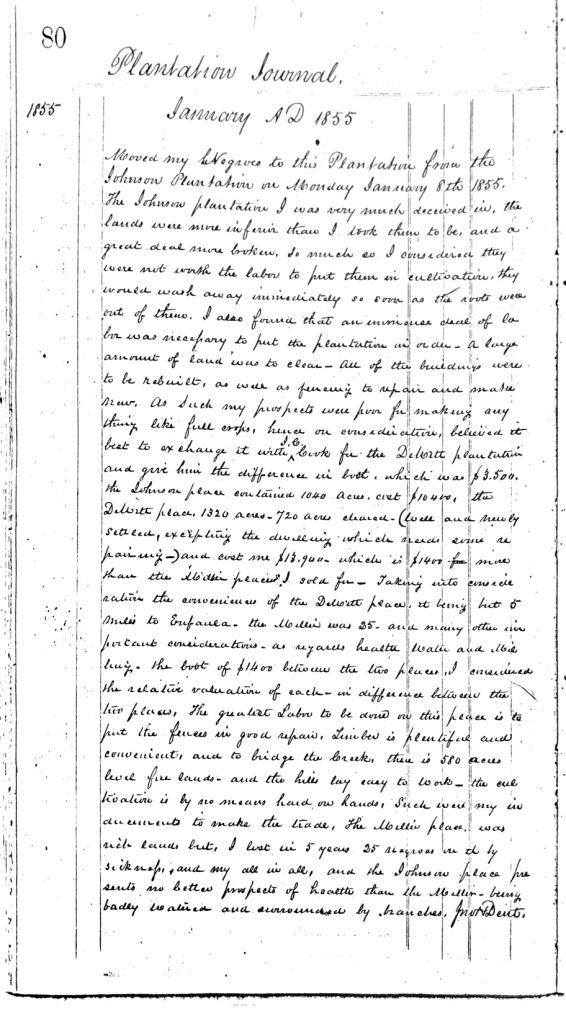 80
Plantation Journal.
1855
January A D 1855
Moved my Negroes to this Plantation from the
Johnson Plantation on Monday January 8th 1855.
The Johnson plantation I was very much deceived in, the
lands were more inferior than I took them to be, and a
great deal more broken, so much so I considered they
were not worth the labor to put them in cultivation, they
would wash away immediately so soon as the roots were
out of them. I also found that an immense deal of la
bor was necessary to put the plantation in order - a large
amount of land was to clear - all of the buildings were
to be rebuilt, as well as fencing to repair and make
new. As such my prospects were poor for making any
thing like full crops, hence on consideration, believed it
best to exchange it with J.C. Cook for the DeWitt plantation
and give him the difference in boot, which was $3.500.
the Johnson place contained 1040 acres, cost $10400, the
DeWitt place, 1320 acres - 720 acres cleared - (well and newly
settled, excepting the dwelling which needs some re
pairing -) and cost me $13.900 - which is $1400 more
than the Millin place I sold for - Taking into conside
ration the conveniences of the DeWitt place, it being but 5
miles to Eufaula - the Millin was 25 - and many other im
portant considerations - as regards health Water and Mil
ling - the boot of $1400 between the two places, I considered
the relative valuation of each - in difference between the
two places, The greatest Labor to be done on this place is to
put the fences in good repair, Timber is plentiful and
convenient, and to bridge the Creek, there is 580 acres
level fine lands - and the hills lay easy to work - the cul
tivation is by no means hard on hands, Such were my in
ducements to make the trade, The Millin place, was
rich lands but, I lost in 5 years 25 negroes on it by
sickness, and my all in all, and the Johnson place pre
sents no better prospects of health than the Millin - being
badly watered and surrounded by branches. Jno H Dent.